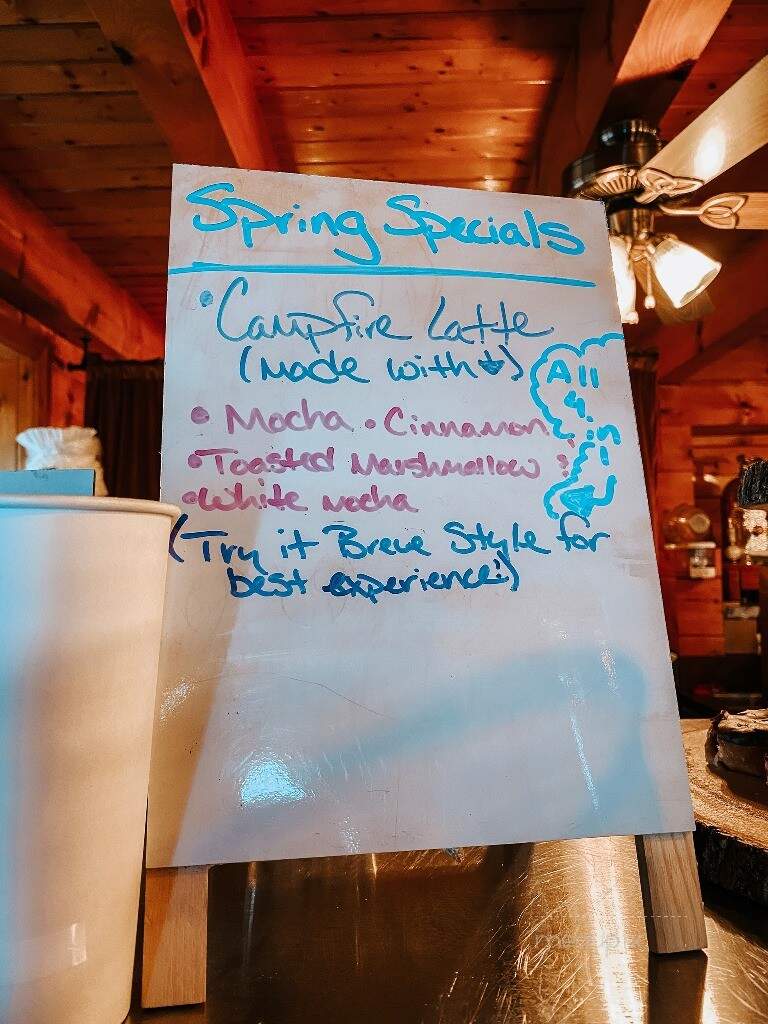 Spring Specials
• Campfire Latte
(Made with ↓)
• Mocha • Cinnamon
• Toasted Marshmallow
• White Mocha
All
4
in
1
(Try it Breve Style for
best experience!)